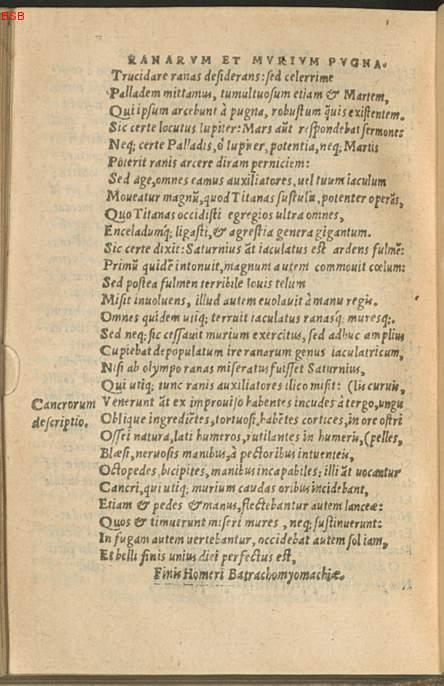 BSB
RANARVM ET MVRIVM PVGNA.
Trucidare ranas desiderans: sed celerrime
Palladem mittamus, tumultuosum etiam & Martem,
Qui ipsum arcebunt à pugna, robustum q̃uis existentem.
Sic certe locutus Iupiter: Mars aũt respondebat sermone:
Neq; certe Palladis, ô Iupiter, potentia, neq; Martis
Poterit ranis arcere diram perniciem:
Sed age, omnes eamus auxiliatores, uel tuum iaculum
Moueatur magnũ, quod Titanas sustulit, potenter operãs,
Quo Titanas occidisti egregios ultra omnes,
Enceladumq; ligasti, & agrestia genera gigantum.
Sic certe dixit: Saturnius ãt iaculatus est ardens fulmẽ:
Primũ quidẽ intonuit, magnum autem commouit cœlum:
Sed postea fulmen terribile Iouis telum
Misit inuoluens, illud autem euolauit à manu regis.
Omnes quidem utiq; terruit iaculatus ranasq; muresq;.
Sed neq; sic cessauit murium exercitus, sed adhuc amplius
Cupiebat depopulatum ire ranarum genus iaculatricum,
Nisi ab olympo ranas miseratus fuisset Saturnius,
Qui utiq; tunc ranis auxiliatores illico misit: (lis curuis,
Cancrorum descriptio.
Venerunt ãt ex improuiso habentes incudes à tergo, ungu
Oblique ingrediẽtes, tortuosi, habẽtes cortices, in ore ostri
Ossei natura, lati humeros, rutilantes in humeris, (pelles,
Blæsi, neruosis manibus, à pectoribus intuentes,
Octopedes, bicipites, manibus incapabiles: illi ãt uocantur
Cancri, qui utiq; murium caudas oribus incidebant,
Etiam & pedes & manus, flectebantur autem lanceæ:
Quos & timuerunt miseri mures, neq; sustinuerunt:
In fugam autem uertebantur, occidebat autem sol iam,
Et belli finis unius diei perfectus est,
Finis Homeri Batrachomyomachiæ.